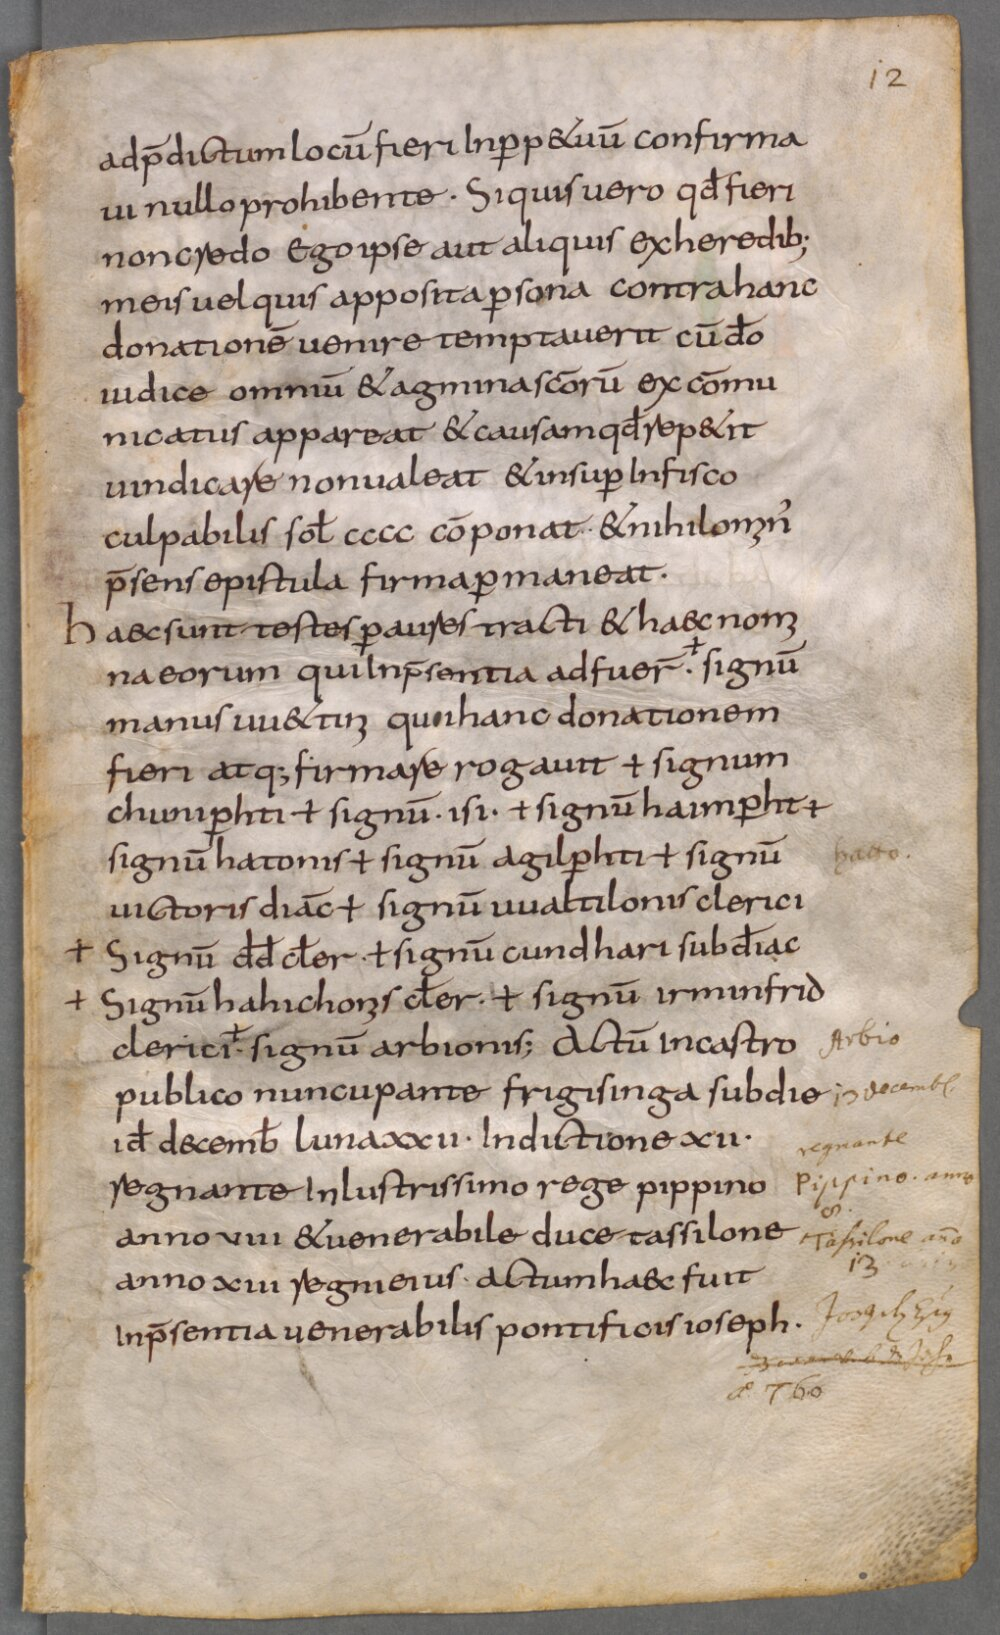 12
adp̄dictum locū fieri Inꝑp&uū confirma
ui nullo prohibente · Siquis uero qđ fieri
non credo Ego ipse aut aliquis exheredib;
meis uel quis apposita ꝑsona contra hanc
donationē uenire temptauerit cū đo
iudice omniū & agmina sc̄orū excōmu
nicatus appareat & causam qđ rep&it
uindicare non ualeat & insuꝑ In fisco
culpabilis soł cccc cōponat · & nihilomin̄
p̄sens epistula firma ꝑmaneat ·
Haec sunt testes ꝑ aures tracti & haec nomi
na eorum qui Inp̄sentia adfuer̄ · + signū
manus uu&tim qui hanc donationem
fieri atq; firmare rogauit + signum
chuniꝑhti + signū · isi · + signū haimꝑht +
signū hatonis + signū agilꝑhti + signū
hatto ·
uictoris diāc + signū uualtilonis clerici
+ Signū đđ cłer · + signū cundhari subđiac
+ Signū hahichonis cłer · + signū irminfrid
clerici · + signū arbionis; Actū In castro
Arbio
publico nuncupante frigisinga subdie
decembł ·
iđ decemƀ luna xxii · Indictione xii ·
regnante
regnante Inlustrissimo rege pippino
Pippino · anno
8
anno viii & uenerabile duce tassilone
Tassilone añо
13
anno xiii regni eius · actum haec fuit
Inp̄sentia uenerabilis pontificis ioseph ·
Joseph
a° 760